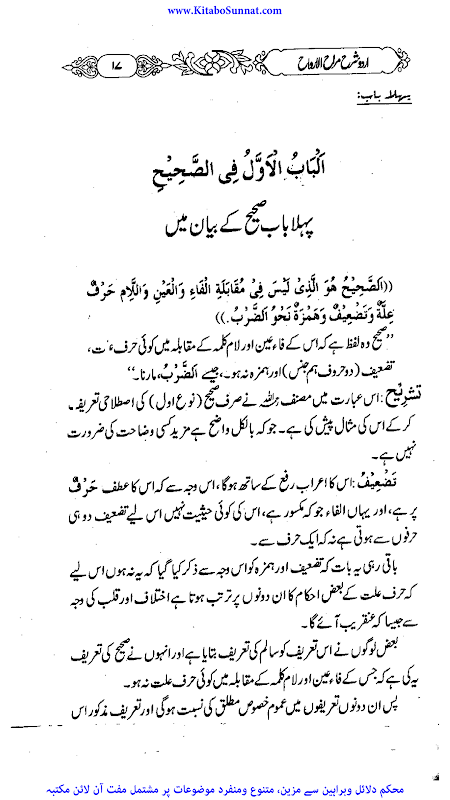 www.KitaboSunnat.com
اردو شرح مراح الارواح
۱۷
پہلا باب:
اَلْبَابُ الْاَوَّلُ فِی الصَّحِیْحِ
پہلا باب صحیح کے بیان میں
((اَلصَّحِیْحُ هُوَ الَّذِیْ لَیْسَ فِیْ مُقَابَلَةِ الْفَاءِ وَالْعَیْنِ وَاللَّامِ حَرْفُ
عِلَّةٌ وَتَضْعِیْفٌ وَهَمْزَةٌ نَحْوُ اَلضَّرْبُ.))
’’صحیح وہ لفظ ہے کہ اس کے فاء عین اور لام کلمہ کے مقابلہ میں کوئی حرف علت،
تضعیف (دو حروف ہم جنس) اور ہمزہ نہ ہو۔، جیسے اَلضَّرْبُ، مارنا۔‘‘
تشریح: اس عبارت میں مصنف رحمہ اللہ نے صرف صحیح (نوع اول) کی اصطلاحی تعریف
کر کے اس کی مثال پیش کی ہے۔ جو کہ بالکل واضح ہے مزید کسی وضاحت کی ضرورت
نہیں ہے۔
تَضْعِیْفٌ: اس کا اعراب رفع کے ساتھ ہوگا، اس وجہ سے کہ اس کا عطف حَرْفٌ
پر ہے، اور یہاں الفاء جو کہ مکسور ہے، اس کی کوئی حیثیت نہیں اس لیے تضعیف دو ہی
حرفوں سے ہوتی ہے نہ کہ ایک حرف سے۔
باقی رہی یہ بات کہ تضعیف اور ہمزہ کو اس وجہ سے ذکر کیا گیا کہ یہ نہ ہوں اس لیے
کہ حرف علت کے بعض احکام کا ان دونوں پر ترتب ہوتا ہے اختلاف اور قلب کی وجہ
سے جیسا کہ عنقریب آئے گا۔
بعض لوگوں نے اس تعریف کو سالم کی تعریف بتایا ہے اور انہوں نے صحیح کی تعریف
یہ کی ہے کہ جس کے فاء عین اور لام کلمہ کے مقابلہ میں کوئی حرف علت نہ ہو۔
پس ان دونوں تعریفوں میں عموم خصوص مطلق کی نسبت ہوگی اور تعریف مذکور اس
محکم دلائل وبراہین سے مزین، متنوع ومنفرد موضوعات پر مشتمل مفت آن لائن مکتبہ